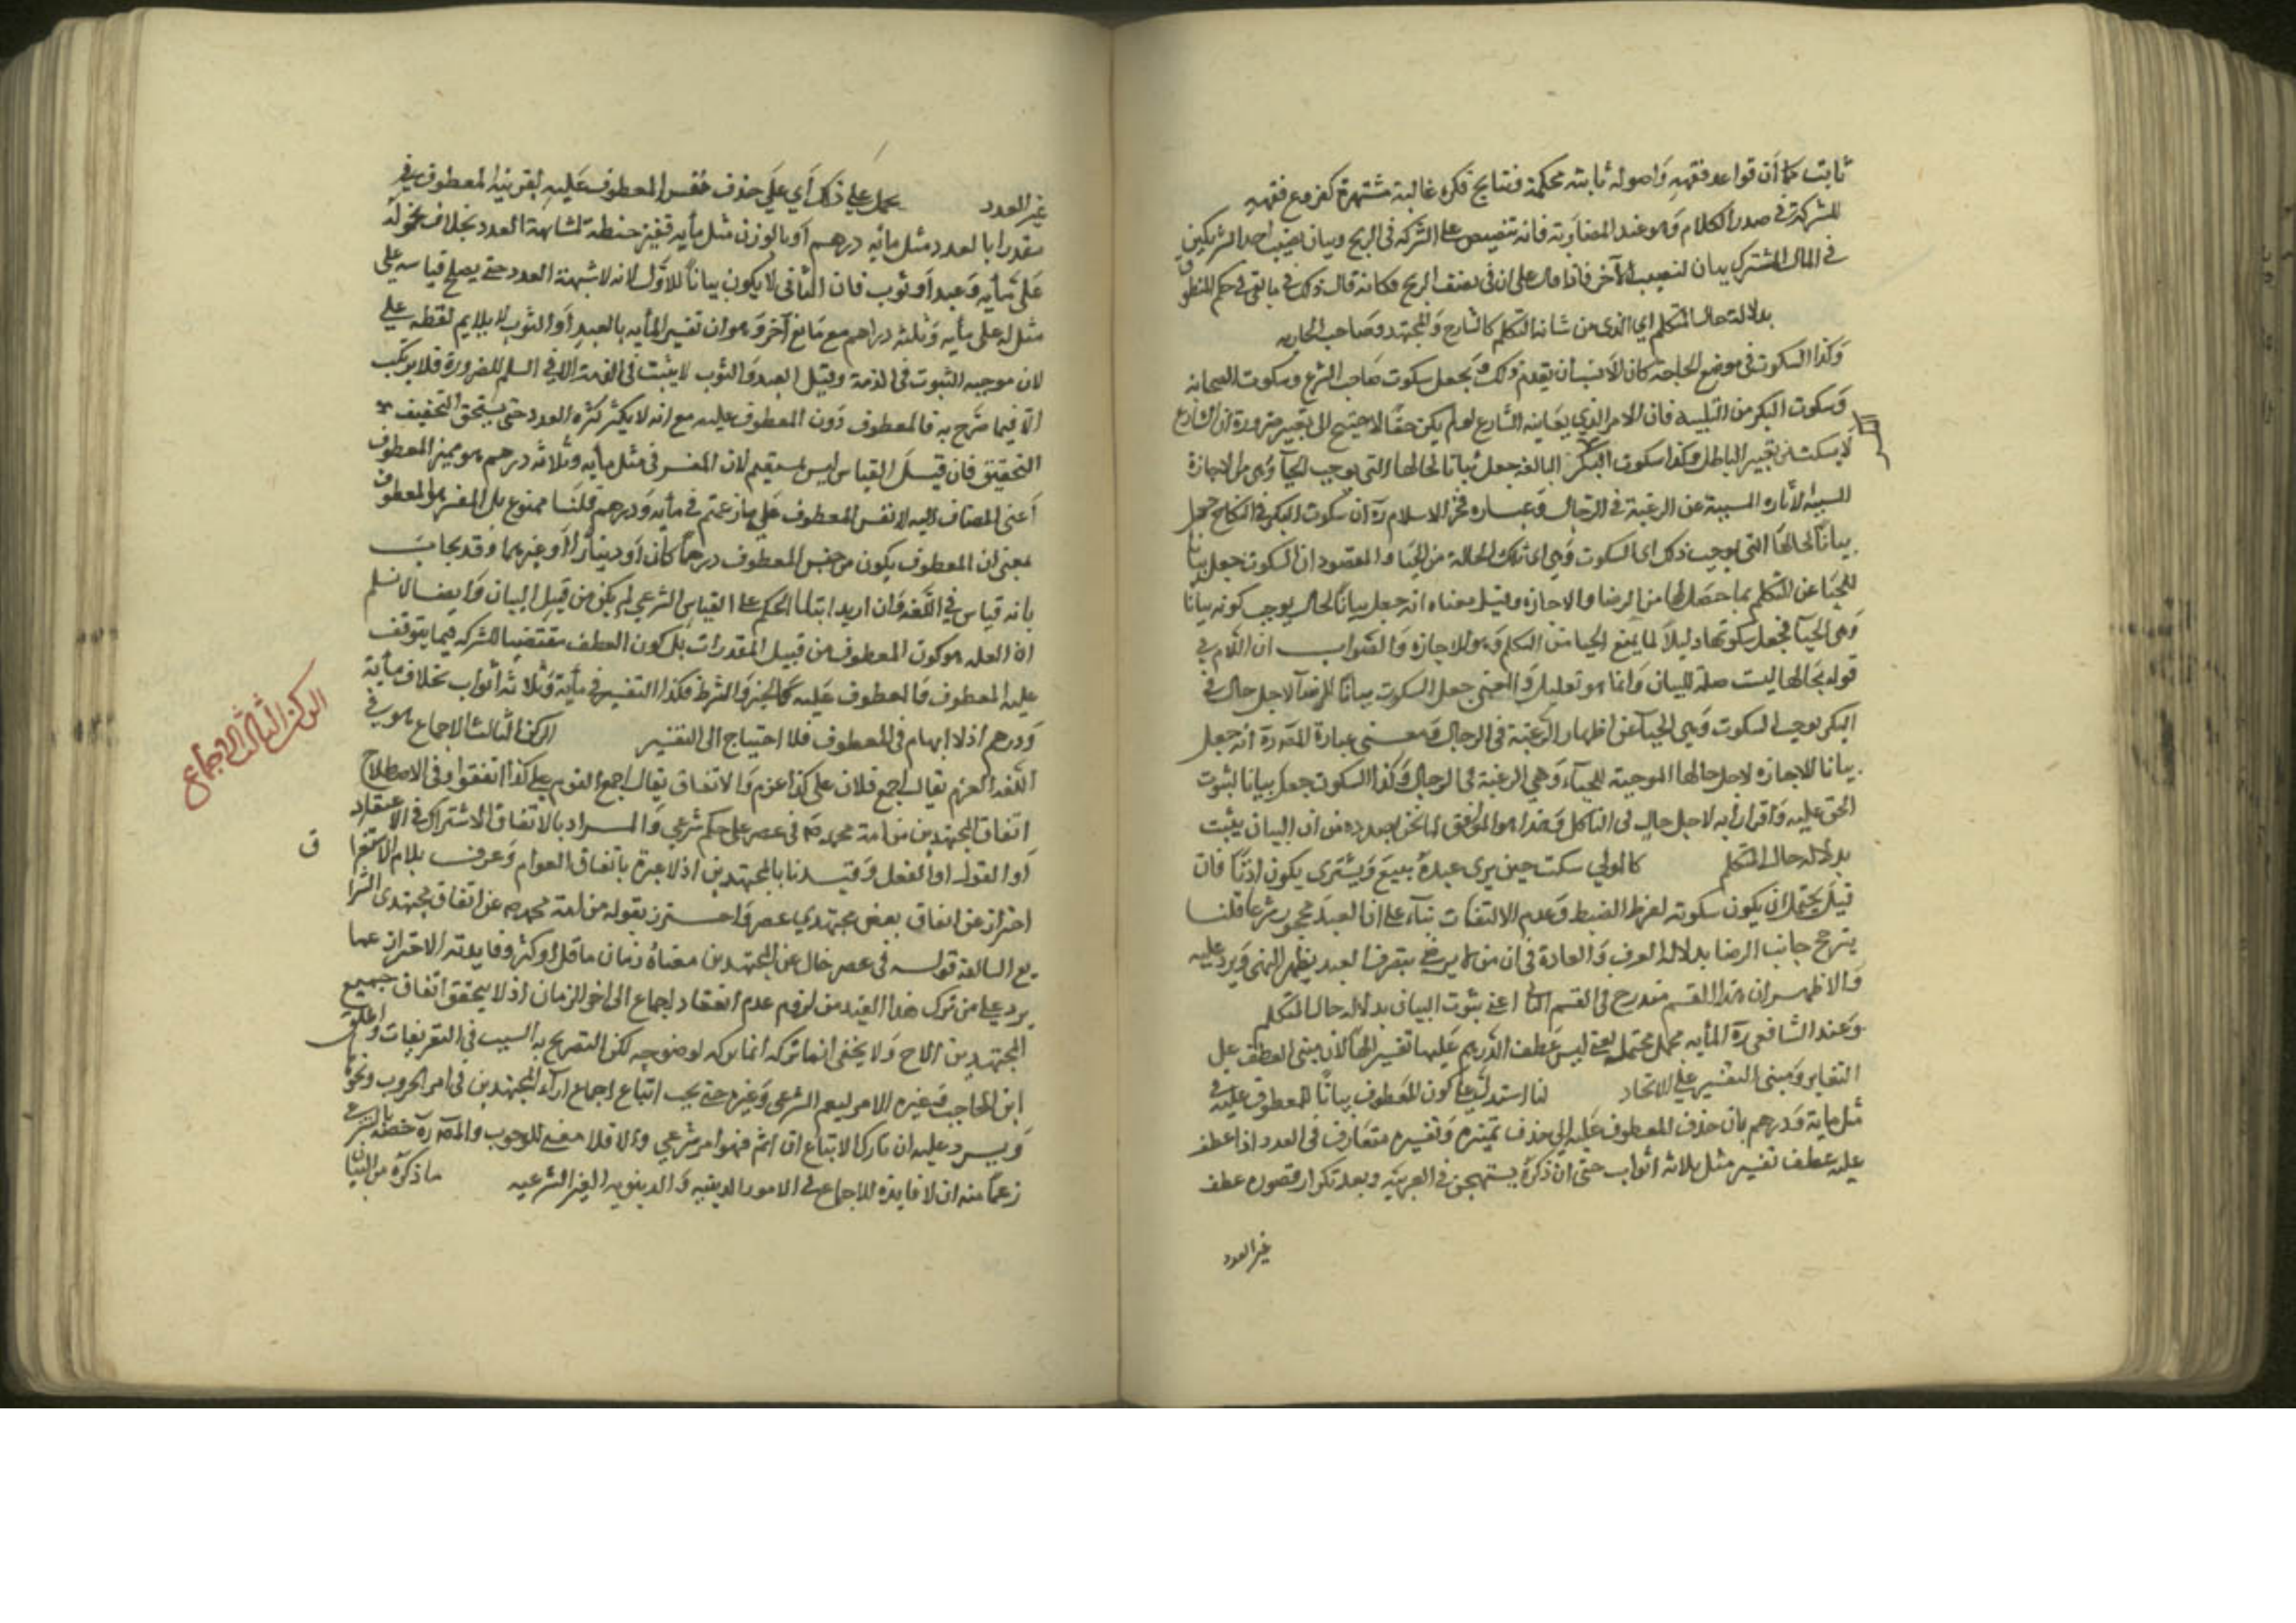 ثابت كما أن قواعد فقهه وأصوله ثابتة محكمة ونتايج فكره غالبة مشتهرة كفروع فقهه
للشركة في صدر الكلام وهو عند المضاربة فانه تنصيص على الشركة في الربح وبيان نصيب احد الشريكين
في المال المشترك بيان لنصيب الآخر فاذا قال على ان لي نصف الربح فكانه قال ذلك في ما بقي في حكم المنطوق
بدلالة حال المتكلم اي الذي من شانه التكلم كالشارع والمجتهد وصاحب الحادثه
وكذا السكوت في موضع الحاجة كان الانسب أن يقدم ذلك ويجعل سكوت صاحب الشرع وسكوت الصحابة
وسكوت البكر من فان الامر الذي يعاينه الشارع لو لم يكن حقا لاحتيج الى تغييره ضرورة ان الشارع
لا يسكت عن تغيير الباطل وكذا سكوت البكر البالغة جعل بيانا لحالها التي توجب الحيآ وهي الاجازة
المبينة عن الرغبة في الرجال وعباره فخر الاسلام ره ان سكوت البكر في النكاح جعل
بيانا لحالها التي توجب ذلك اي السكوت وهي اي تلك الحالة من الحيا والمقصود ان السكوت جعل بيانا
للحيا عن التكلم بما حصل لها من الرضا والاجازة وقيل معناه انه جعل بيانا لحال يوجب كونه بيانا
وهي الحيآ فجعل سكوتها دليلا لما يمنع الحيا من التكلم وهو الاجازة والصواب ان اللام في
قوله لحالها ليست صلة للبيان وانما هو تعليل والمعنى جعل السكوت بيانا للرضآ لاجل حال في
البكر يوجب السكوت وهي الحيآ عن اظهار الرغبة في الرجال ومعنى عبارة المص ره انه جعل
بيانا للاجازه لاجل حالها الموجبة للحيآء وهي الرغبة في الرجال وكذا السكوت جعل بيانا لثبوت
الحق عليه واقرارا به لاجل حال في الناكل وهذا هو الموافق لما نحن بصدده من ان البيان يثبت
بدلالة حال المتكلم كالمولي سكت حين يرى عبده يبيع ويشتري يكون اذنا فان
قيل يحتمل ان يكون سكوته لفرط الضبط وعدم الالتفات بناء على ان العبد محجور شرعا قلنا
يترجح جانب الرضا بدلالة العرف والعادة في ان من لا يرضى بتصرف العبد يظهر النهي ويرد عليه
والاظهر ان هذا القسم مندرج في القسم الثاني اعني ثبوت البيان بدلالة حال المتكلم
وعند الشافعي ره المأيه مجمل محتمله يعني ليس عطف الدرهم عليها تفسيرا لها لان مبنى العطف على
التغاير ومبنى التفسير على الاتحاد لنا استدل على كون المعطوف بيانا للمعطوف عليه في
مثل مايه ودرهم بان حذف المعطوف عليه اي حذف تمييزه وتفسيره متعارف في العدد اذا عطف
عليه عطف تفسير مثل ثلاثه اثواب حتى ان ذكره يستهجن في العربيه وبعد تكرار قصوده عطف
غير العدد
غير العدد يحمل على ذلك أي على حذف مفسر المعطوف عليه بقرينة المعطوف في
مقدرا بالعدد مثل مأيه درهم او بالوزن مثل مأيه قفيز حنطه لمشابهة العدد بخلاف نحو له
على مأيه وعبد أو ثوب فان الثاني لا يكون بيانا للاول لانه لا شبهة العدد حتى يصلح قياسه على
مثل له على مأيه وثلثه دراهم مع مانع آخر وهو ان تفسير المأيه بالعبد او الثوب لا يلايم لفظه علي
لان موجبه الثبوت في الذمة وقيل العبد والثوب لا يثبت في الذمة الا في السلم للضرورة فلا يرتكب
الا فيما صرح به فالمعطوف دون المعطوف عليه مع انه لا يكثر كثرة العدد حتى يستحق التخفيف
التحقيق فان قيل القياس ليس بمستقيم لان المفسر في مثل مأيه وثلاثه درهم هو مميز المعطوف
أعني المضاف اليه لا نفس المعطوف على ما زعمتم في مأيه ودرهم قلنا ممنوع بل المفسر هو المعطوف
بمعنى ان المعطوف يكون من جنس المعطوف درهما كان أو دينارا أو غيرهما وقد يجاب
بانه قياس في اللغه وان اريد ابتنا الحكم على القياس الشرعي لم يكن من قبيل البيان وايضا لا نسلم
ان العله هو كون المعطوف من قبيل المقدرات بل كون العطف مقتضيا للشركة فيما يتوقف
عليه المعطوف والمعطوف عليه كالخبر والشرط فكذا التفسير في مأية وثلاثه أثواب بخلاف مأية
ودرهم اذ لا ابهام في المعطوف فلا احتياج الى التفسير الركن الثالث الاجماع هو في
اللغه العزم يقال اجمع فلان على كذا عزم والاتفاق يقال اجمع القوم على كذا اتفقوا وفي الاصطلاح
اتفاق المجتهدين من امة محمد صم في عصر على حكم شرعي والمراد بالاتفاق الاشتراك في الاعتقاد
أو القول أو الفعل وقيدنا بالمجتهدين اذ لا عبرة باتفاق العوام وعرف بلام الاستغراق
احتراز عن اتفاق بعض مجتهدي عصر واحترز بقوله من امة محمد صم عن اتفاق مجتهدي الشرا
يع السالفه قوله في عصر حال عن المجتهدين معناه زمان ما قل أو كثر وفايدته الاحتراز عما
يرد على من ترك هذا القيد من لزوم عدم انعقاد اجماع الى اخر الزمان اذ لا يتحقق اتفاق جميع
المجتهدين الاح ولا يخفى ان ما تركه انما تركه لوضوحه لكن التصريح به انسب في التعريفات واطلق
ابن الحاجب وغيره الامر ليعم الشرعي وغيره حتى يجب اتباع اجماع ارآء المجتهدين في امر الحروب ونحوه
ويرد عليه ان تارك الاتباع ان اثم فهو امر شرعي والا فلا معنى للوجوب والمص ره خصه بالشرعي
زعما منه ان لا فايدة للاجماع في الامور الدينيه والدنيويه الغير الشرعيه ما ذكره من البيان
الركن الثالث الاجماع
ق